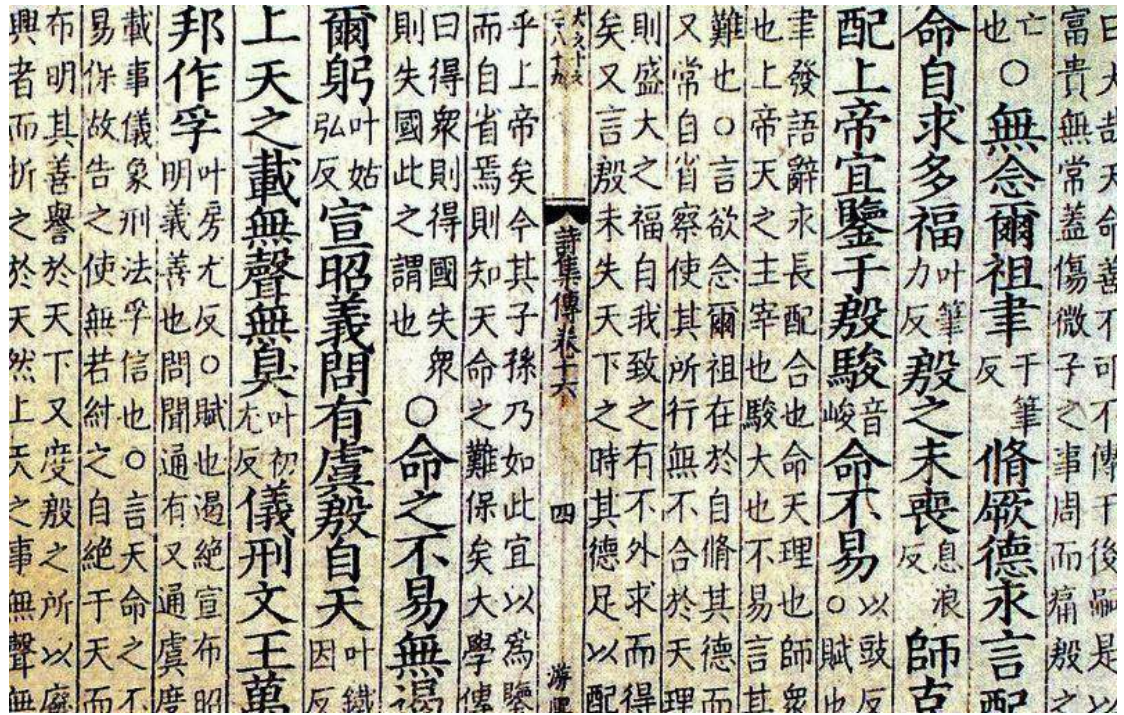 曰大哉天命善不可不傳于後嗣是以
富貴無常蓋傷微子之事周而痛殷之
亡也○無念爾祖聿于筆反脩厥德永言配
命自求多福叶筆力反殷之未喪息浪反師克
配上帝宜鑒于殷駿音峻命不易以豉反○賦也
聿發語辭永長配合也命天理也師衆
也上帝天之主宰也駿大也不易言其
難也○言欲念爾祖在於自脩其德而
又常自省察使其所行無不合於天理
則盛大之福自我致之有不外求而得
矣又言殷未失天下之時其德足以配
詩集傳卷十六 四 游
乎上帝矣今其子孫乃如此宜以爲鑒
而自省焉則知天命之難保矣大學傳
曰得衆則得國失衆則失國此之謂也○命之不易無遏
爾躬叶姑弘反宣昭義問有虞殷自天叶鐵因反
上天之載無聲無臭叶初尤反儀刑文王萬
邦作孚叶房尤反○賦也遏絕宣布昭
明義善也問聞通有又通虞度
載事儀象刑法孚信也○言天命之不
易保故告之使無若紂之自絕于天而
布明其善譽於天下又度殷之所以廢
興者而折之於天然上天之事無聲無